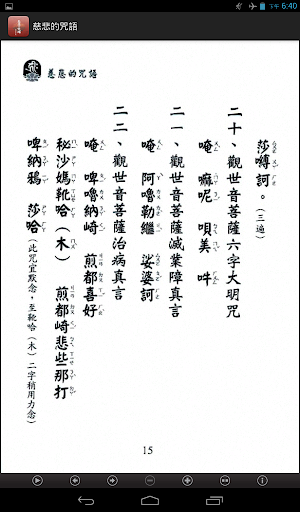 下午 6:40
慈悲的咒語
慈悲的咒語
莎嚩訶。(三遍)
二十、觀世音菩薩六字大明咒
唵 嘛呢 唄美 吽
二一、觀世音菩薩滅業障真言
唵 阿嚕勒繼 娑婆訶
二二、觀世音菩薩治病真言
唵 啤嚕納崎 煎都喜好
秘沙媽靴哈(木) 煎都崎悲些那打
啤納鴉 莎哈(此咒宜默念,至靴哈(木)二字稍用力念)
15